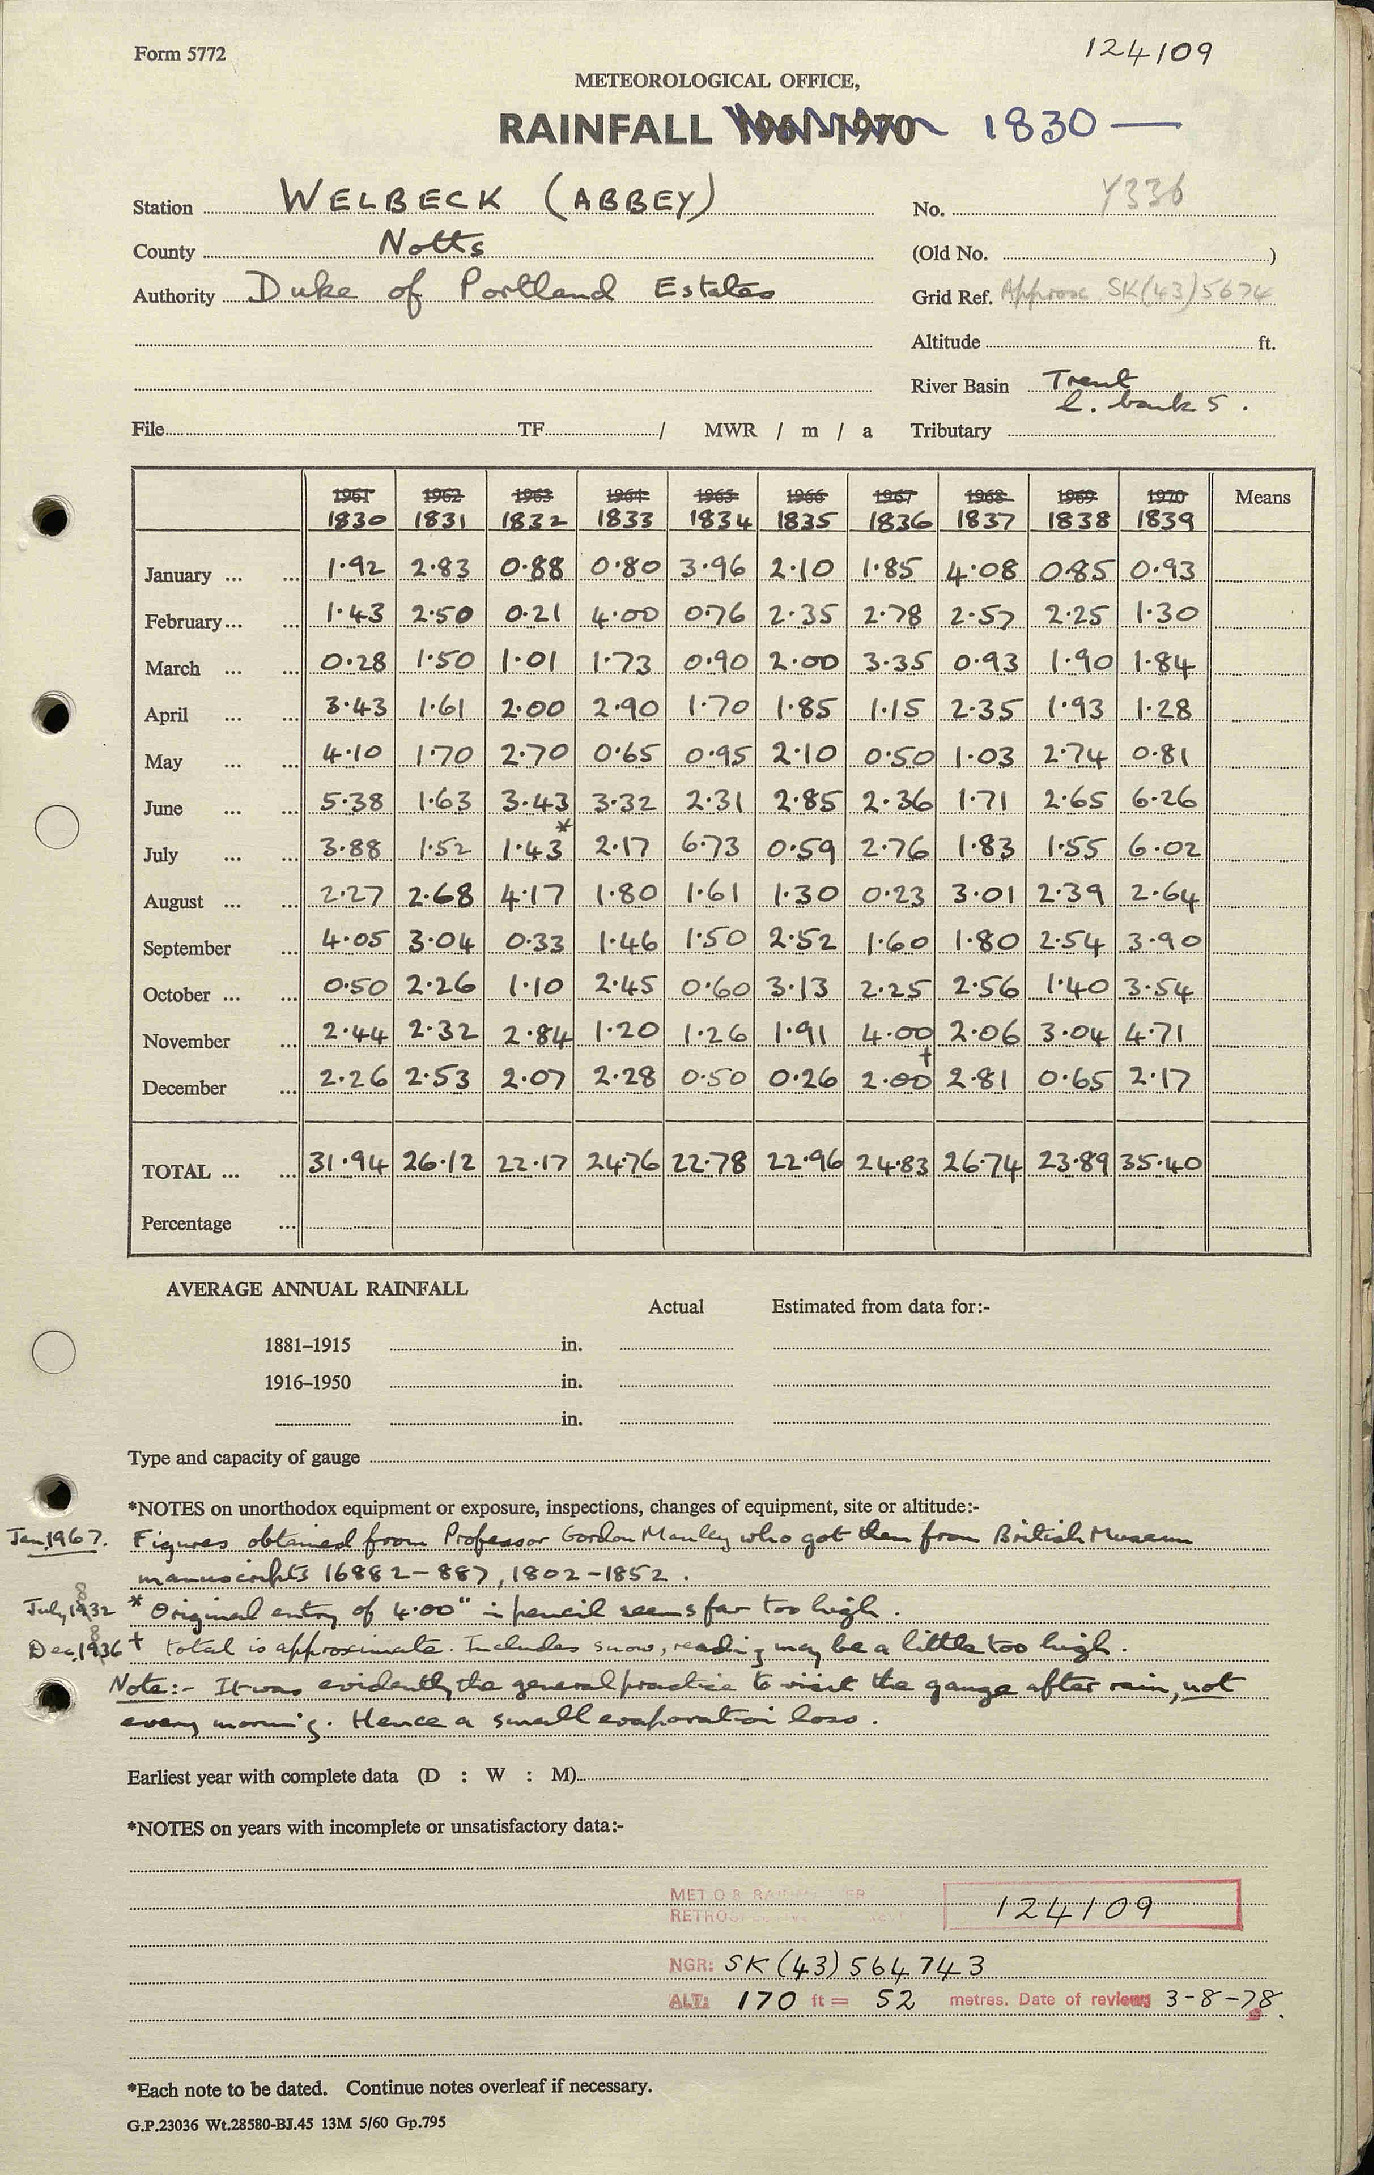 Form 5772
124109
METEOROLOGICAL OFFICE,
RAINFALL 1961-1970 1830 —
Station WELBECK (ABBEY) No. Y336
County Notts (Old No. )
Authority Duke of Portland Estates Grid Ref. Approx SK(43)5674
Altitude ft.
River Basin Trent
l. bank 5.
File TF / MWR / m / a Tributary
1961 1962 1963 1964 1965 1966 1967 1968 1969 1970 Means
1830 1831 1832 1833 1834 1835 1836 1837 1838 1839
January ... ... 1.92 2.83 0.88 0.80 3.96 2.10 1.85 4.08 0.85 0.93
February ... ... 1.43 2.50 0.21 4.00 0.76 2.35 2.78 2.57 2.25 1.30
March ... ... 0.28 1.50 1.01 1.73 0.90 2.00 3.35 0.93 1.90 1.84
April ... ... 3.43 1.61 2.00 2.90 1.70 1.85 1.15 2.35 1.93 1.28
May ... ... 4.10 1.70 2.70 0.65 0.95 2.10 0.50 1.03 2.74 0.81
June ... ... 5.38 1.63 3.43 3.32 2.31 2.85 2.36 1.71 2.65 6.26
July ... ... 3.88 1.52 1.43* 2.17 6.73 0.59 2.76 1.83 1.55 6.02
August ... ... 2.27 2.68 4.17 1.80 1.61 1.30 0.23 3.01 2.39 2.64
September ... 4.05 3.04 0.33 1.46 1.50 2.52 1.60 1.80 2.54 3.90
October ... ... 0.50 2.26 1.10 2.45 0.60 3.13 2.25 2.56 1.40 3.54
November ... 2.44 2.32 2.84 1.20 1.26 1.91 4.00 2.06 3.04 4.71
December ... 2.26 2.53 2.07 2.28 0.50 0.26 2.00† 2.81 0.65 2.17
TOTAL ... ... 31.94 26.12 22.17 24.76 22.78 22.96 24.83 26.74 23.89 35.40
Percentage ...
AVERAGE ANNUAL RAINFALL
Actual Estimated from data for:-
1881–1915 in.
1916–1950 in.
in.
Type and capacity of gauge
*NOTES on unorthodox equipment or exposure, inspections, changes of equipment, site or altitude:-
Jan, 1967. Figures obtained from Professor Gordon Manley who got them from British Museum
manuscripts 16882-887, 1802-1852.
July, 1832 * Original entry of 4.00" in pencil seems far too high.
Dec, 1836 † total is approximate. Includes snow, reading may be a little too high.
Note:- It was evidently the general practice to visit the gauge after rain, not
every morning. Hence a small evaporation loss.
Earliest year with complete data (D : W : M)
*NOTES on years with incomplete or unsatisfactory data:-
MET O 8
124109
NGR: SK (43) 564743
ALT: 170 ft = 52 metres. Date of review: 3-8-78.
*Each note to be dated. Continue notes overleaf if necessary.
G.P.23036 Wt.28580-BJ.45 13M 5/60 Gp.795